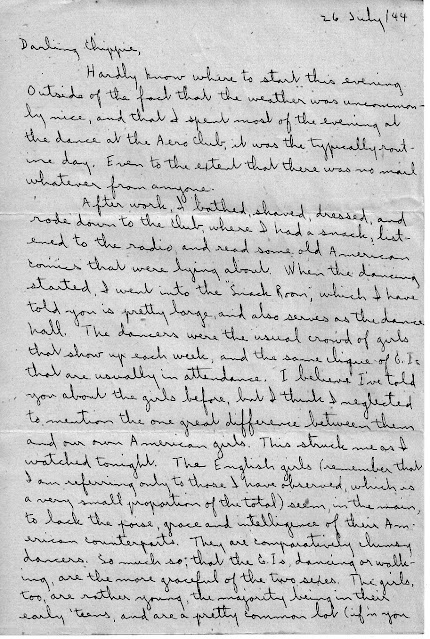 26 July/44
Darling Chippie,
Hardly know where to start this evening
Outside of the fact that the weather was uncommon-
ly nice, and that I spent most of the evening at
the dance at the Aero Club, it was the typically rout-
ine day. Even to the extent that there was no mail
whatever from anyone.
After work, I bathed, shaved, dressed, and
rode down to the Club, where I had a snack, list-
ened to the radio, and read some old American
comics that were lying about. When the dancing
started, I went into the "Snack Room", which I have
told you is pretty large, and also serves as the dance
hall. The dancers were the usual crowd of girls
that show up each week, and the same clique of G.I.s
that are usually in attendance. I believe I've told
you about the girls before, but I think I neglected
to mention the one great difference between them
and our own American girls. This struck me as I
watched tonight. The English girls (remember that
I am referring only to those I have observed, which is
a very small proportion of the total) seem, in the main,
to lack the poise, grace and intelligence of their Am-
erican counterparts. They are comparatively clumsy
dancers. So much so, that the G.I.s, dancing or walk-
ing, are the more graceful of the two sexes. The girls,
too, are rather young, the majority being in their
early 'teens, and are a pretty common lot (if'n you